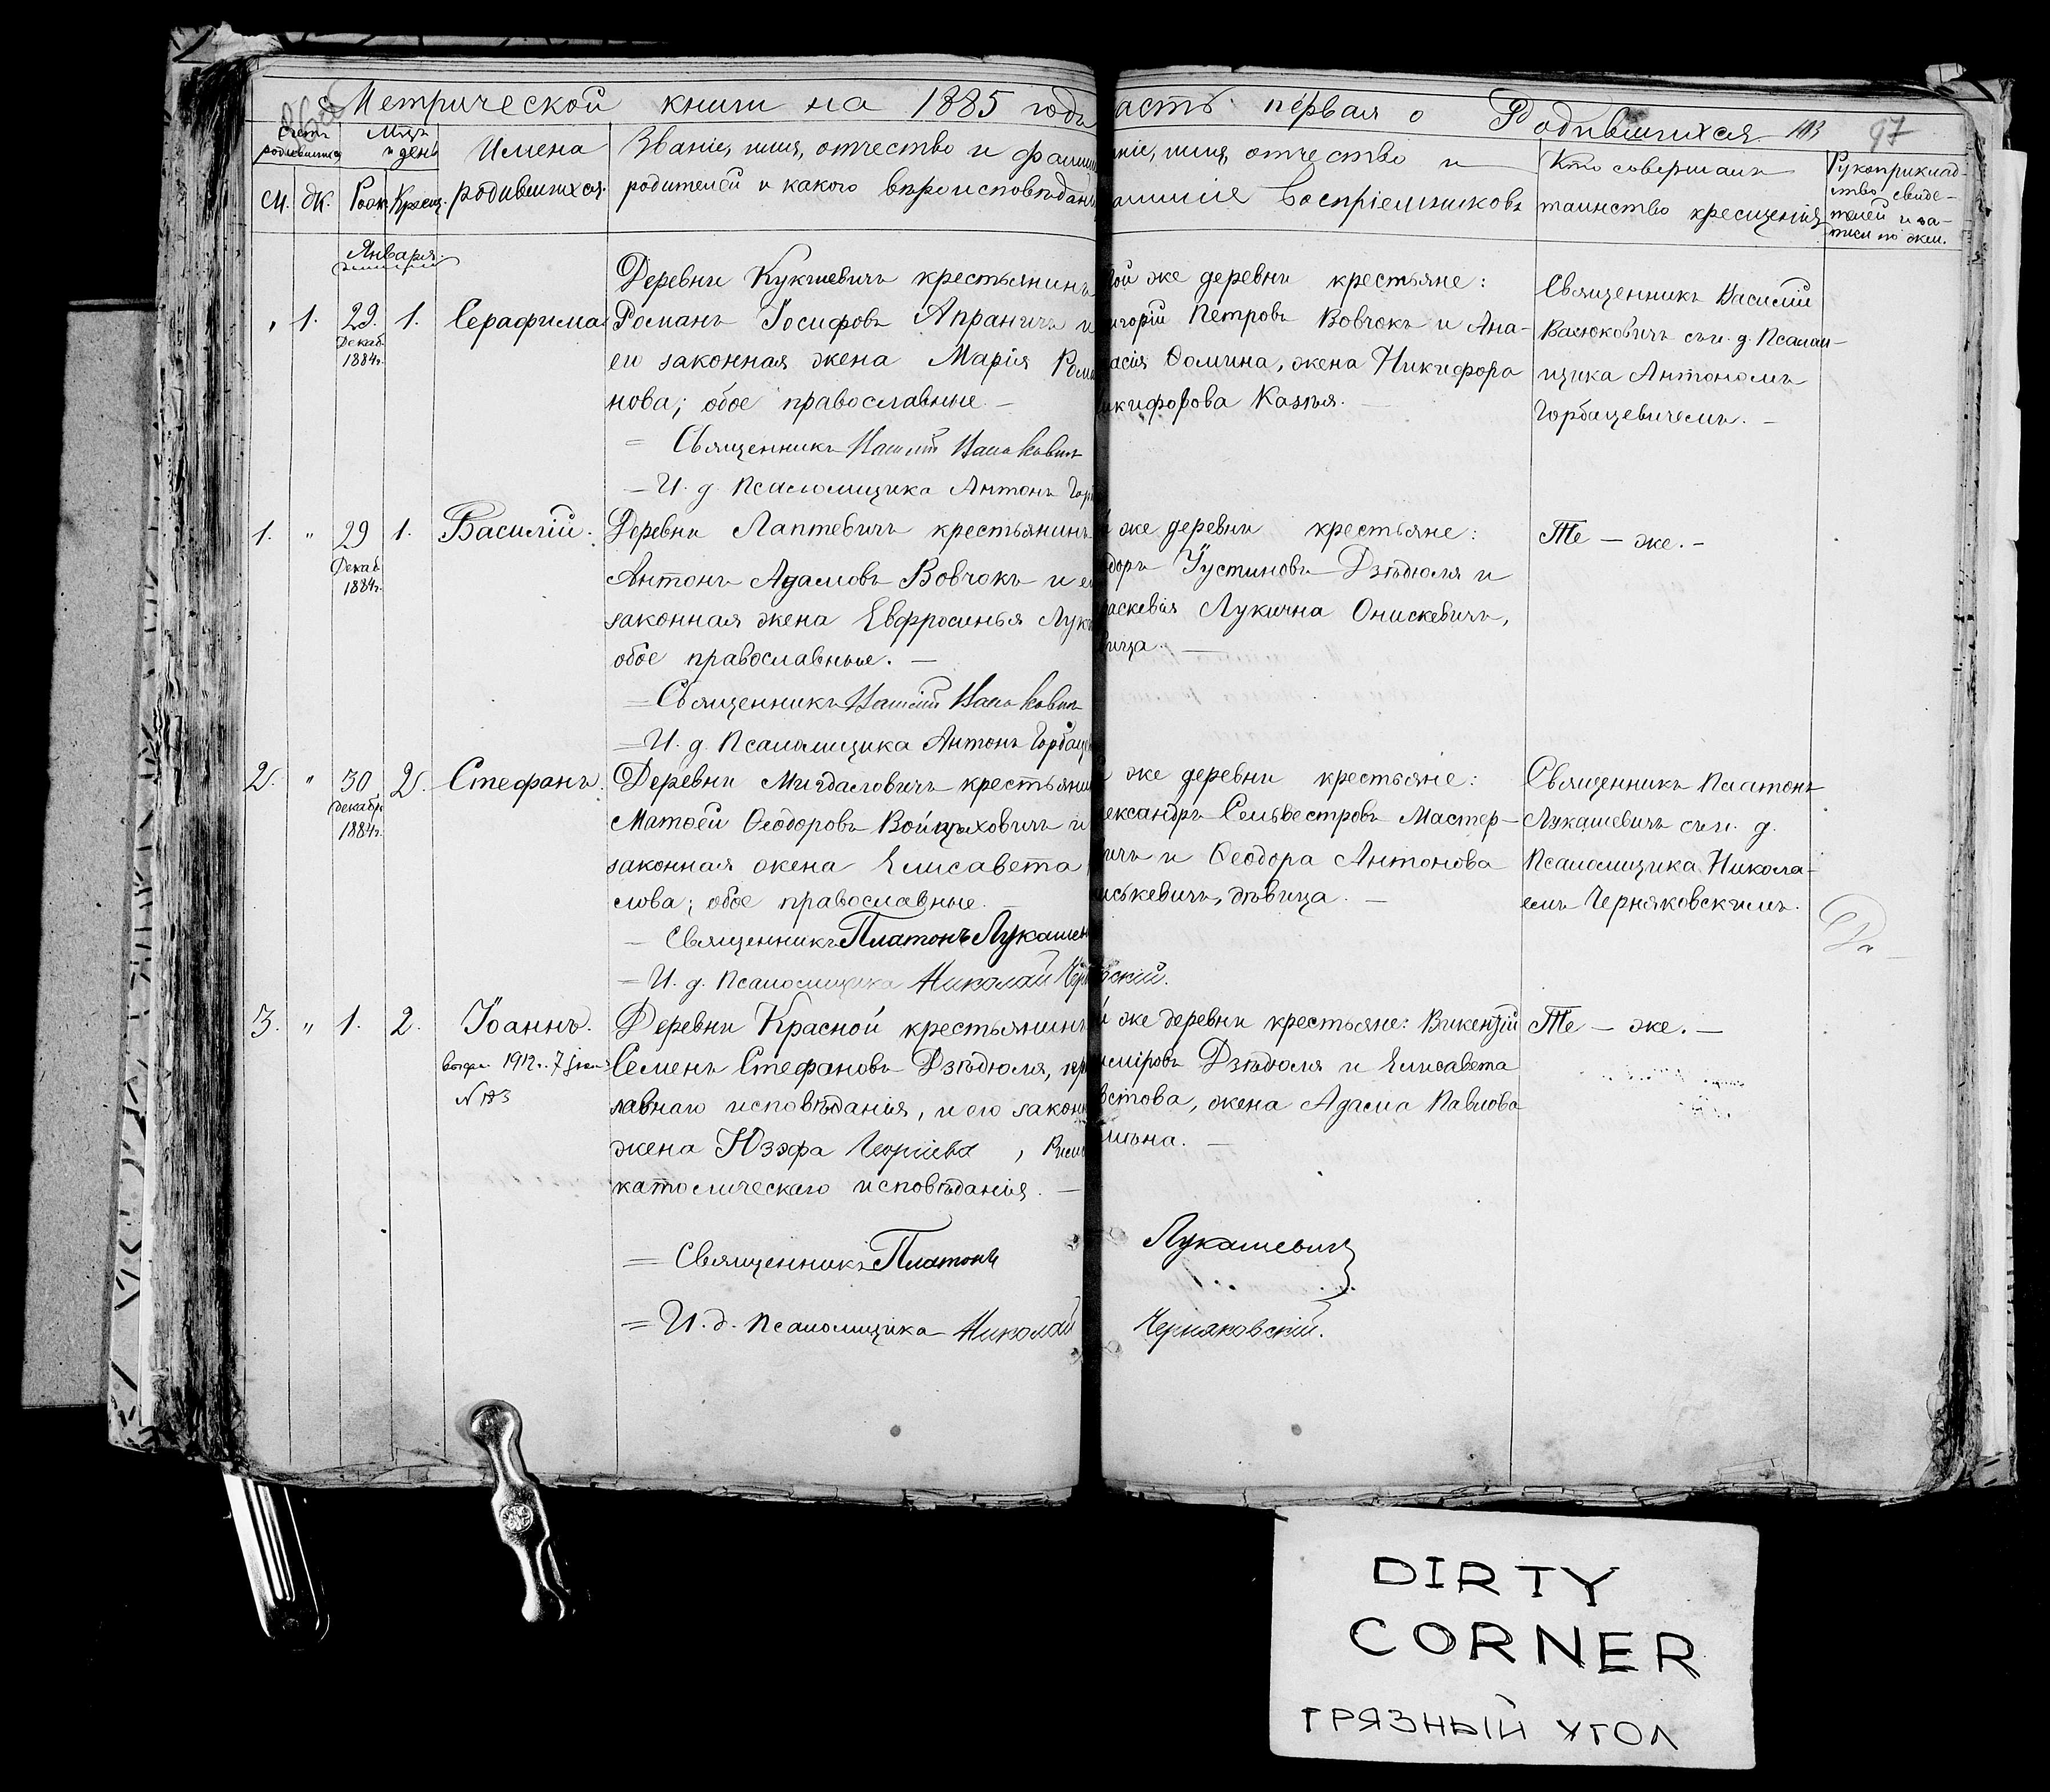 Метрической книги на 1885 годъ
асть первая о Родившихся 103 97
Счетъ родившихся
Мѣсяцъ и день
Имена родившихся.
Званіе, имя, отчество и фамил
родителей и какого вѣроисповѣдан
ніе, имя, отчество и
амилія Воспріемниковъ
Кто совершалъ
таинство крещенія
Рукоприклад-
ство свиде-
телей и за-
писи по жел.
М. Ж. Рожд. Крещ.
Января.
" 1. 29. Декаб. 1884г. 1. Серафима
Деревни Кукшевичъ крестьянинъ
Романъ Іосифовъ Апраничъ и
его законная жена Марія Рома
нова; обое православные. —
= Священникъ Василій
— И. д. Псаломщика Антонъ Гор
той же деревни крестьяне:
игорій Петровъ Вовчокъ и Ана-
асія Ѳомина, жена Никифора
икифорова Казъя. —
Священникъ Василій
съ и. д. Псалом-
щика Антономъ
Горбацевичемъ. —
1. " 29 Декаб. 1884г. 1. Василій.
Деревни Лаптевичъ крестьянинъ
Антонъ Адамовъ Вовчокъ и ег
законная жена Евфросинья Лук
обое православные. —
= Священникъ Василій
= И. д. Псаломщика Антонъ Горбаце
же деревни крестьяне:
доръ Іустиновъ Дзѣдюля и
раскевія Лукична Онискевичъ,
вица. —
Тѣ — же. —
2. " 30 декабр. 1884г. 2. Стефанъ.
Деревни Мигдаловичъ крестьянин
Матѳей Ѳеодоровъ Войцѣховичъ и
законная жена Елисавета
слова; обое православные. —
— Священникъ Платонъ Лукашев
— И. д. Псаломщика Николай Черн вскій.
же деревни крестьяне:
ександръ Сельвестровъ Мастер-
ичъ и Ѳеодора Антонова
иськевичъ, дѣвица. —
Священникъ Платонъ
Лукашевичъ съ и. д.
Псаломщика Никола-
емъ Черняковскимъ.
3. " 1. 2. Іоаннъ.
1912г. 7
Деревни Красной крестьянинъ
Семенъ Стефановъ Дзѣдюля, пра
лавнаго исповѣданія, и его законн
жена Юзэфа Георгіева, Римс
католическаго исповѣданія. —
й же деревни крестьяне: Викентій
иміровъ Дзѣдюля и Елисавета
встова, жена Адама Павлова
. —
Тѣ — же. —
= Священникъ Платонъ Лукашевичъ
= И. д. Псаломщика Николай Черняковскій.
DIRTY
CORNER
ГРЯЗНЫЙ УГОЛ